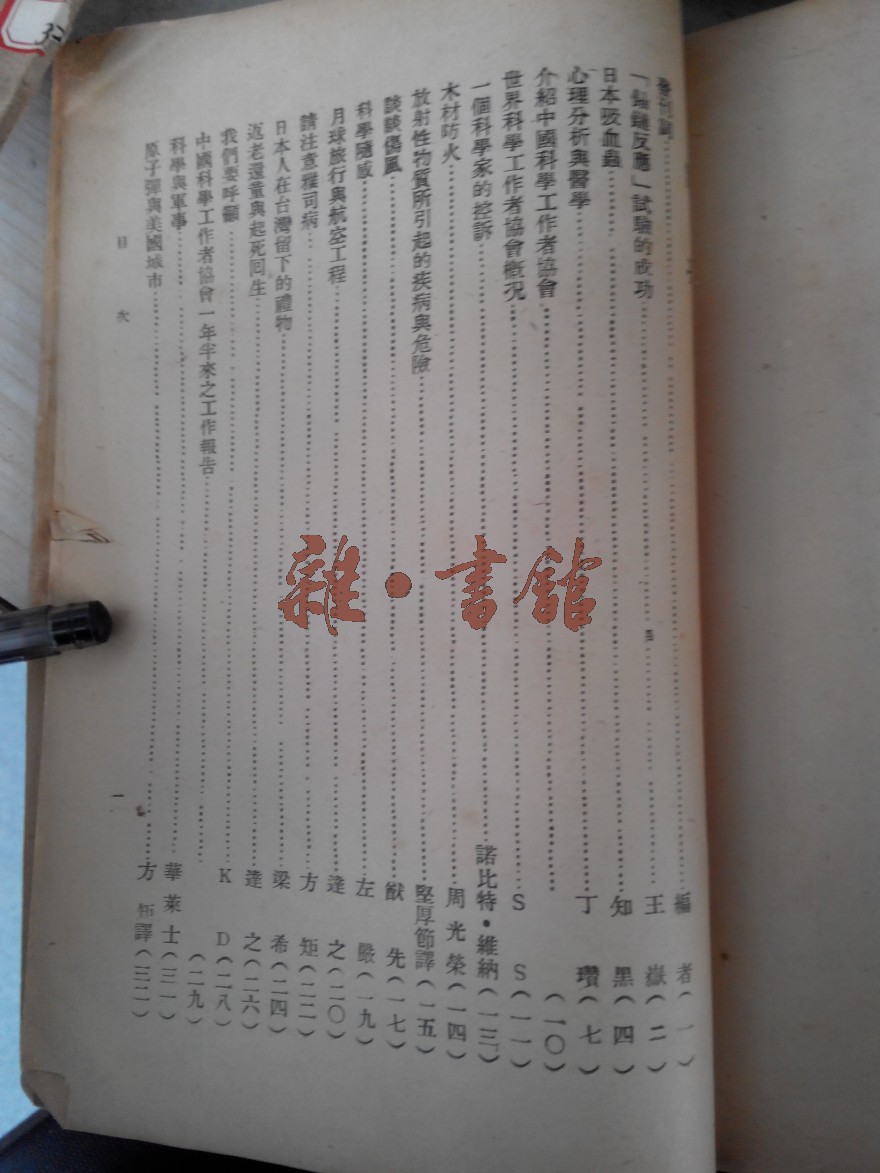 發刊詞 編者(一)
「鈾鏈反應」試驗的成功 王嶽(二)
日本吸血蟲 知黑(四)
心理分析與醫學 丁瓚(七)
介紹中國科學工作者協會 (一〇)
世界科學工作者協會概况 SS(一一)
一個科學家的控訴 諾比特·維納(一三)
木材防火 周光榮(一四)
放射性物質所引起的疾病與危險 堅厚節譯(一五)
談談傷風 猷先(一七)
科學隨感 左嚴(一九)
月球旅行與航空工程 逢之(二〇)
請注意雅司病 方矩(二二)
日本人在台灣留下的禮物 梁希(二四)
返老還童與起死回生 逢之(二六)
我們要呼籲 KD(二八)
中國科學工作者協會一年半來之工作報告 (二九)
科學與軍事 華萊士(三一)
原子彈與美國城市 方矩譯(三二)
目次
一
雜·書館
32